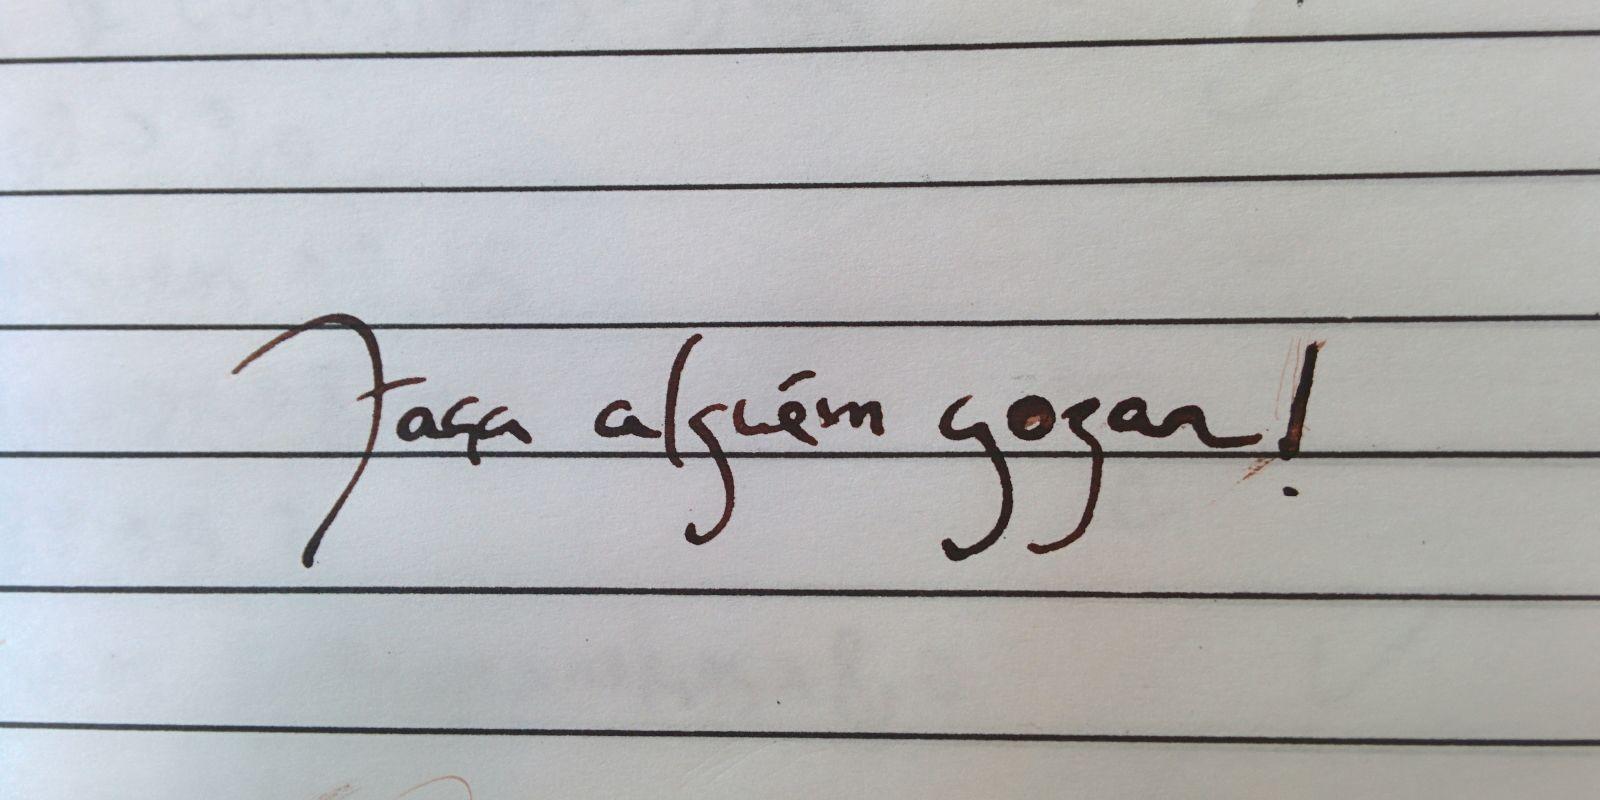 Faça alguém gozar!